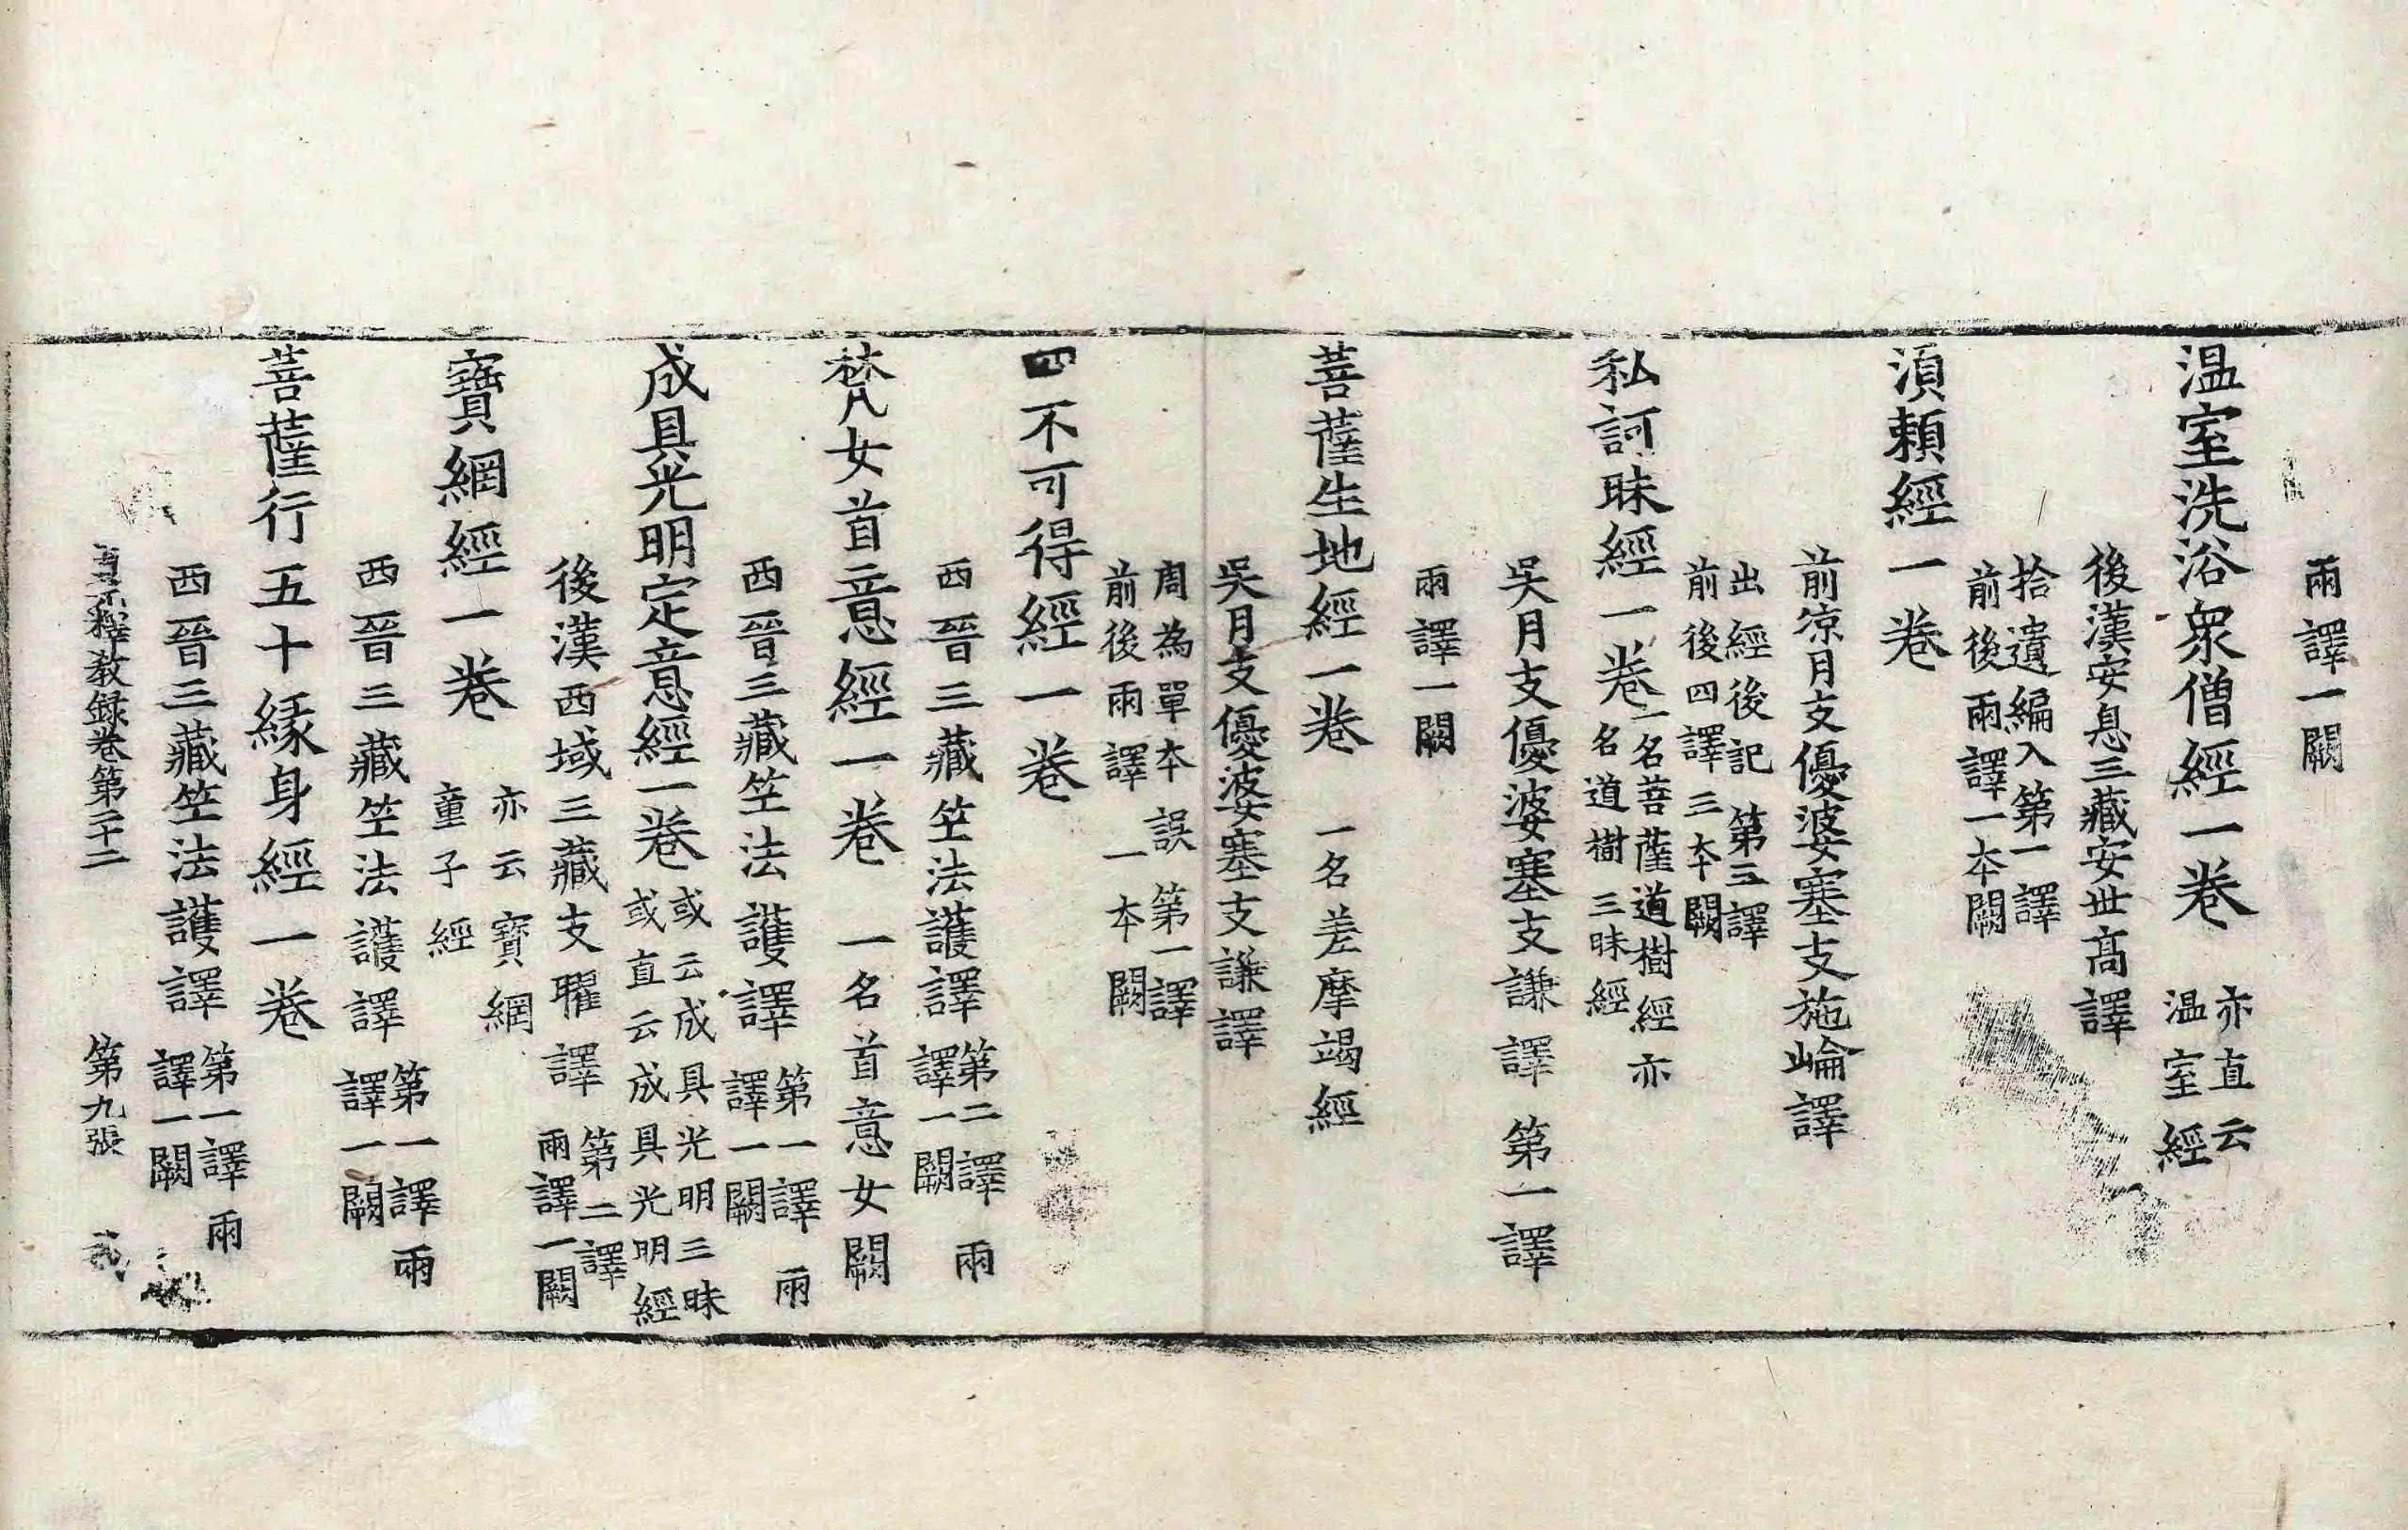 兩譯一闕
温室洗浴衆僧經一卷 亦直云温室經
後漢安息三藏安世高譯
拾遺編入第一譯
前後兩譯一本闕
湏賴經一卷
前凉月支優婆塞支施崘譯
出經後記第三譯
前後四譯三本闕
私訶昧經一卷 一名菩薩道樹經亦名道樹三昧經
吳月支優婆塞支謙譯 第一譯
兩譯一闕
菩薩生地經一卷 一名差摩竭經
吳月支優婆塞支謙譯
周為單本誤第一譯
前後兩譯一本闕
四不可得經一卷
西晉三藏竺法護譯 第二譯兩譯一闕
梵女首意經一卷 一名首意女闕
西晉三藏竺法護譯 第一譯兩譯一闕
成具光明定意經一卷 或云成具光明三昧或直云成具光明經
後漢西域三藏支曜譯 第二譯兩譯一闕
寶網經一卷 亦云寶網童子經
西晉三藏竺法護譯 第一譯兩譯一闕
菩薩行五十緣身經一卷
西晉三藏竺法護譯 第一譯兩譯一闕
釋教錄卷第二十二 第九張